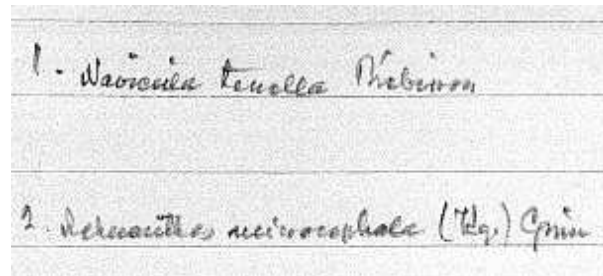 1. Navicula tenella Brébisson
2. Achnanthes microcephala (Kg.) Grun